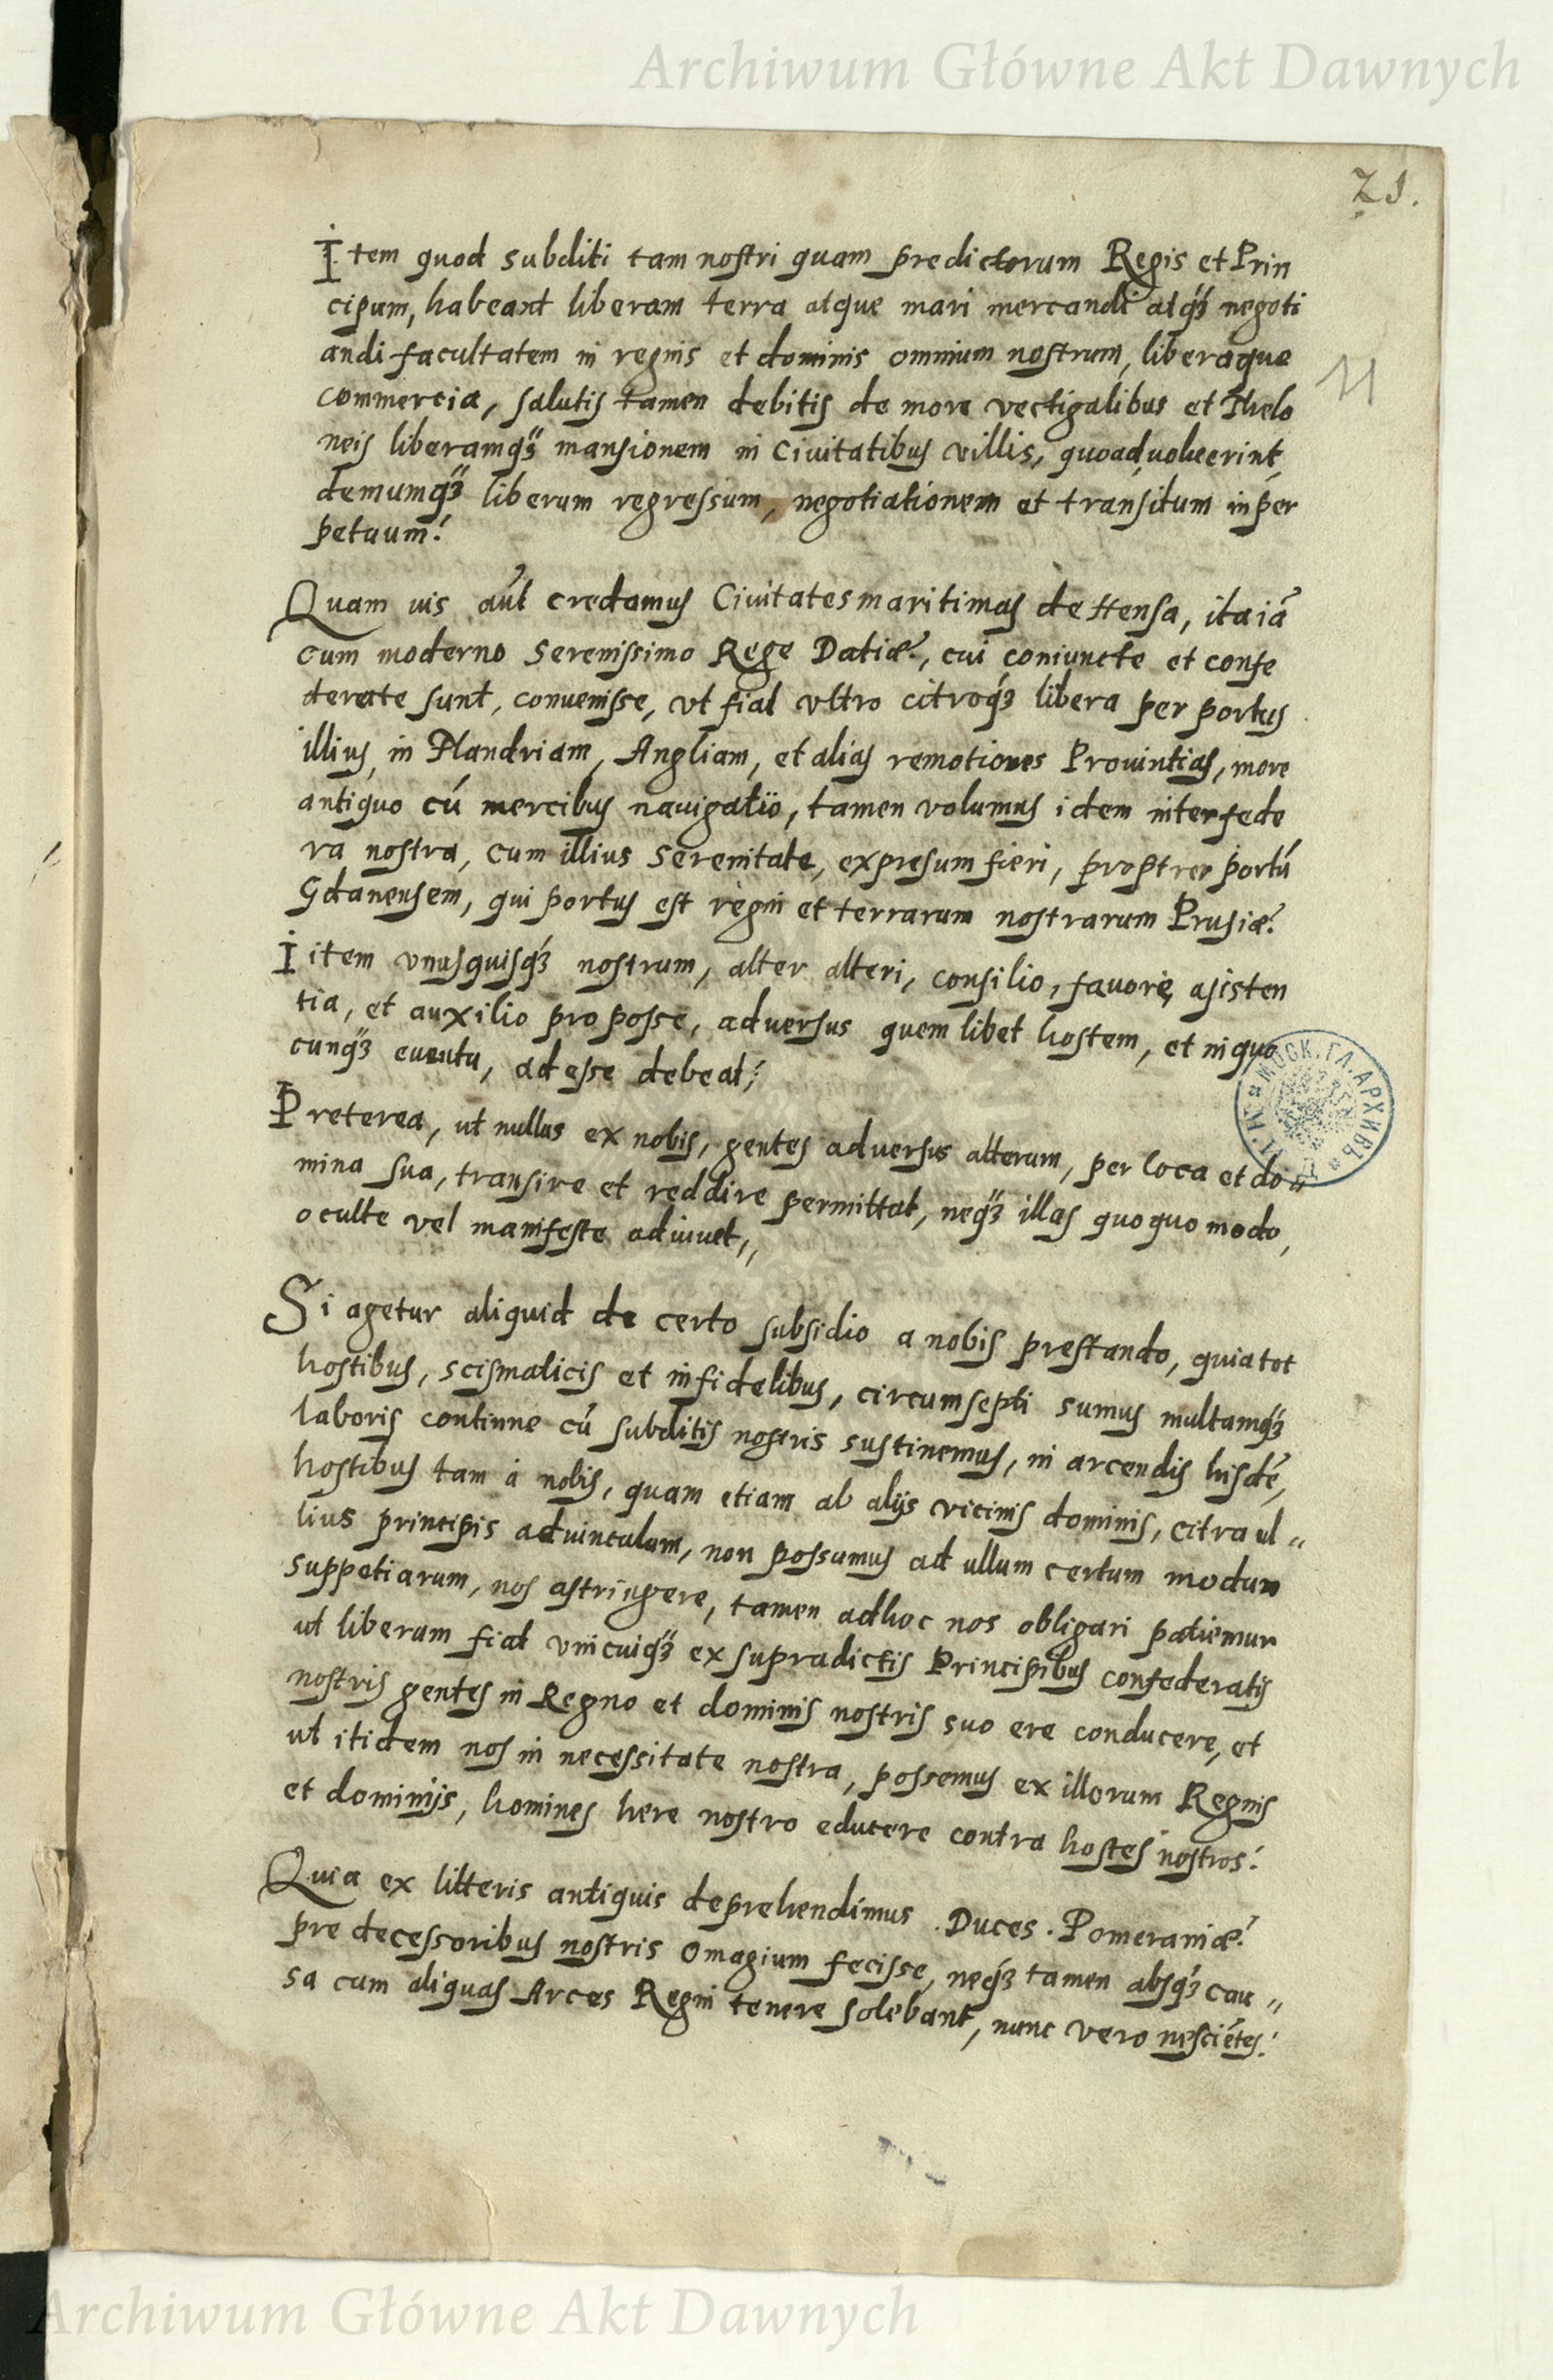 Archiwum Główne Akt Dawnych
21.
Item quod subditi tam nostri quam predictorum Regis et Prin
cipum, habeant liberam terra atque mari mercandi atq́ʒ negoti
andi facultatem in regnis et dominis omnium nostrum, liberaque
11
commercia, salutis tamen debitis de more vectigalibus et Thelo
neis liberamq́ʒ mansionem in Ciuitatibus villis, quoad, voluerint
demumq́ʒ liberum regressum, negotiationem et transitum in per
petuum.
Quam uis aūt credamus Ciuitates maritimas de Hensa, ita iā
cum moderno Serenissimo Rege Datiæ, cui coniuncte et confe
derate sunt, convenisse, vt fiat vltro citroq́ʒ libera per portus
illius, in Flandriam, Angliam, et alias remotiores Prouintias, more
antiquo cū mercibus nauigatio, tamen volumus idem inter fede
ra nostra, cum illius Serenitate, expresum fieri, proptrer portū
Gdanensem, qui portus est regni et terrarum nostrarum Prusiæ.
Iitem vnusquisq́ʒ nostrum, alter alteri, consilio, favore, asisten
tia, et auxilio pro posse, adversus quem libet hostem, et in quo
cunq́ʒ euentu, ad esse debeat;
Preterea, ut nullus ex nobis, gentes adversus alterum, per loca et do„
mina sua, transire et reddire permittat, neq́ʒ illas quoquo modo,
oculte vel manifeste adiuuet,,
Si agetur aliquid de certo subsidio a nobis prestando, quia tot
hostibus, scismaticis et infidelibus, circumsepti sumus multamq́ʒ
laboris continue cū subditis nostris sustinemus, in arcendis hisdē,
hostibus tam á nobis, quam etiam ab alijs vicinis dominis, citra ul„
lius principis aduinculum, non possumus ad ullum certum modum
suppetiarum, nos astringere, tamen adhoc nos obligari patiemur
ut liberum fiat vnicuiq́ʒ ex supradictis Principibus confederatis
nostris gentes in Regno et dominis nostris suo ere conducere, et
ut itidem nos in necessitate nostra, possemus ex illorum Regnis
et dominijs, homines here nostro educere contra hostes nostros.
Quia ex litteris antiquis deprehendimus . Duces . Pomeraniæ.
pre decessoribus nostris omagium fecisse, neq́ʒ tamen absq́ʒ cau„
sa cum aliquas Arces Regni tenere solebant, nunc vero nesciētes.
МОСК. ГЛ. АРХИВЪ
Archiwum Główne Akt Dawnych